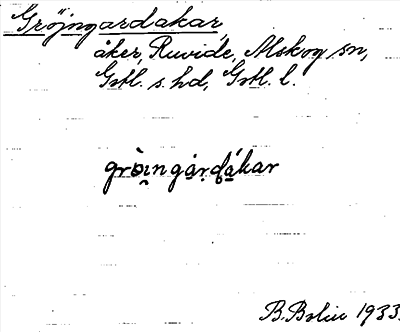 Gröjngardakar,
åker, Ruvide, Alskog sn,
Gotl. s. hd, Gotl. l.
grò̰ɪngár̥ḍákar
B. Bolin 1933.